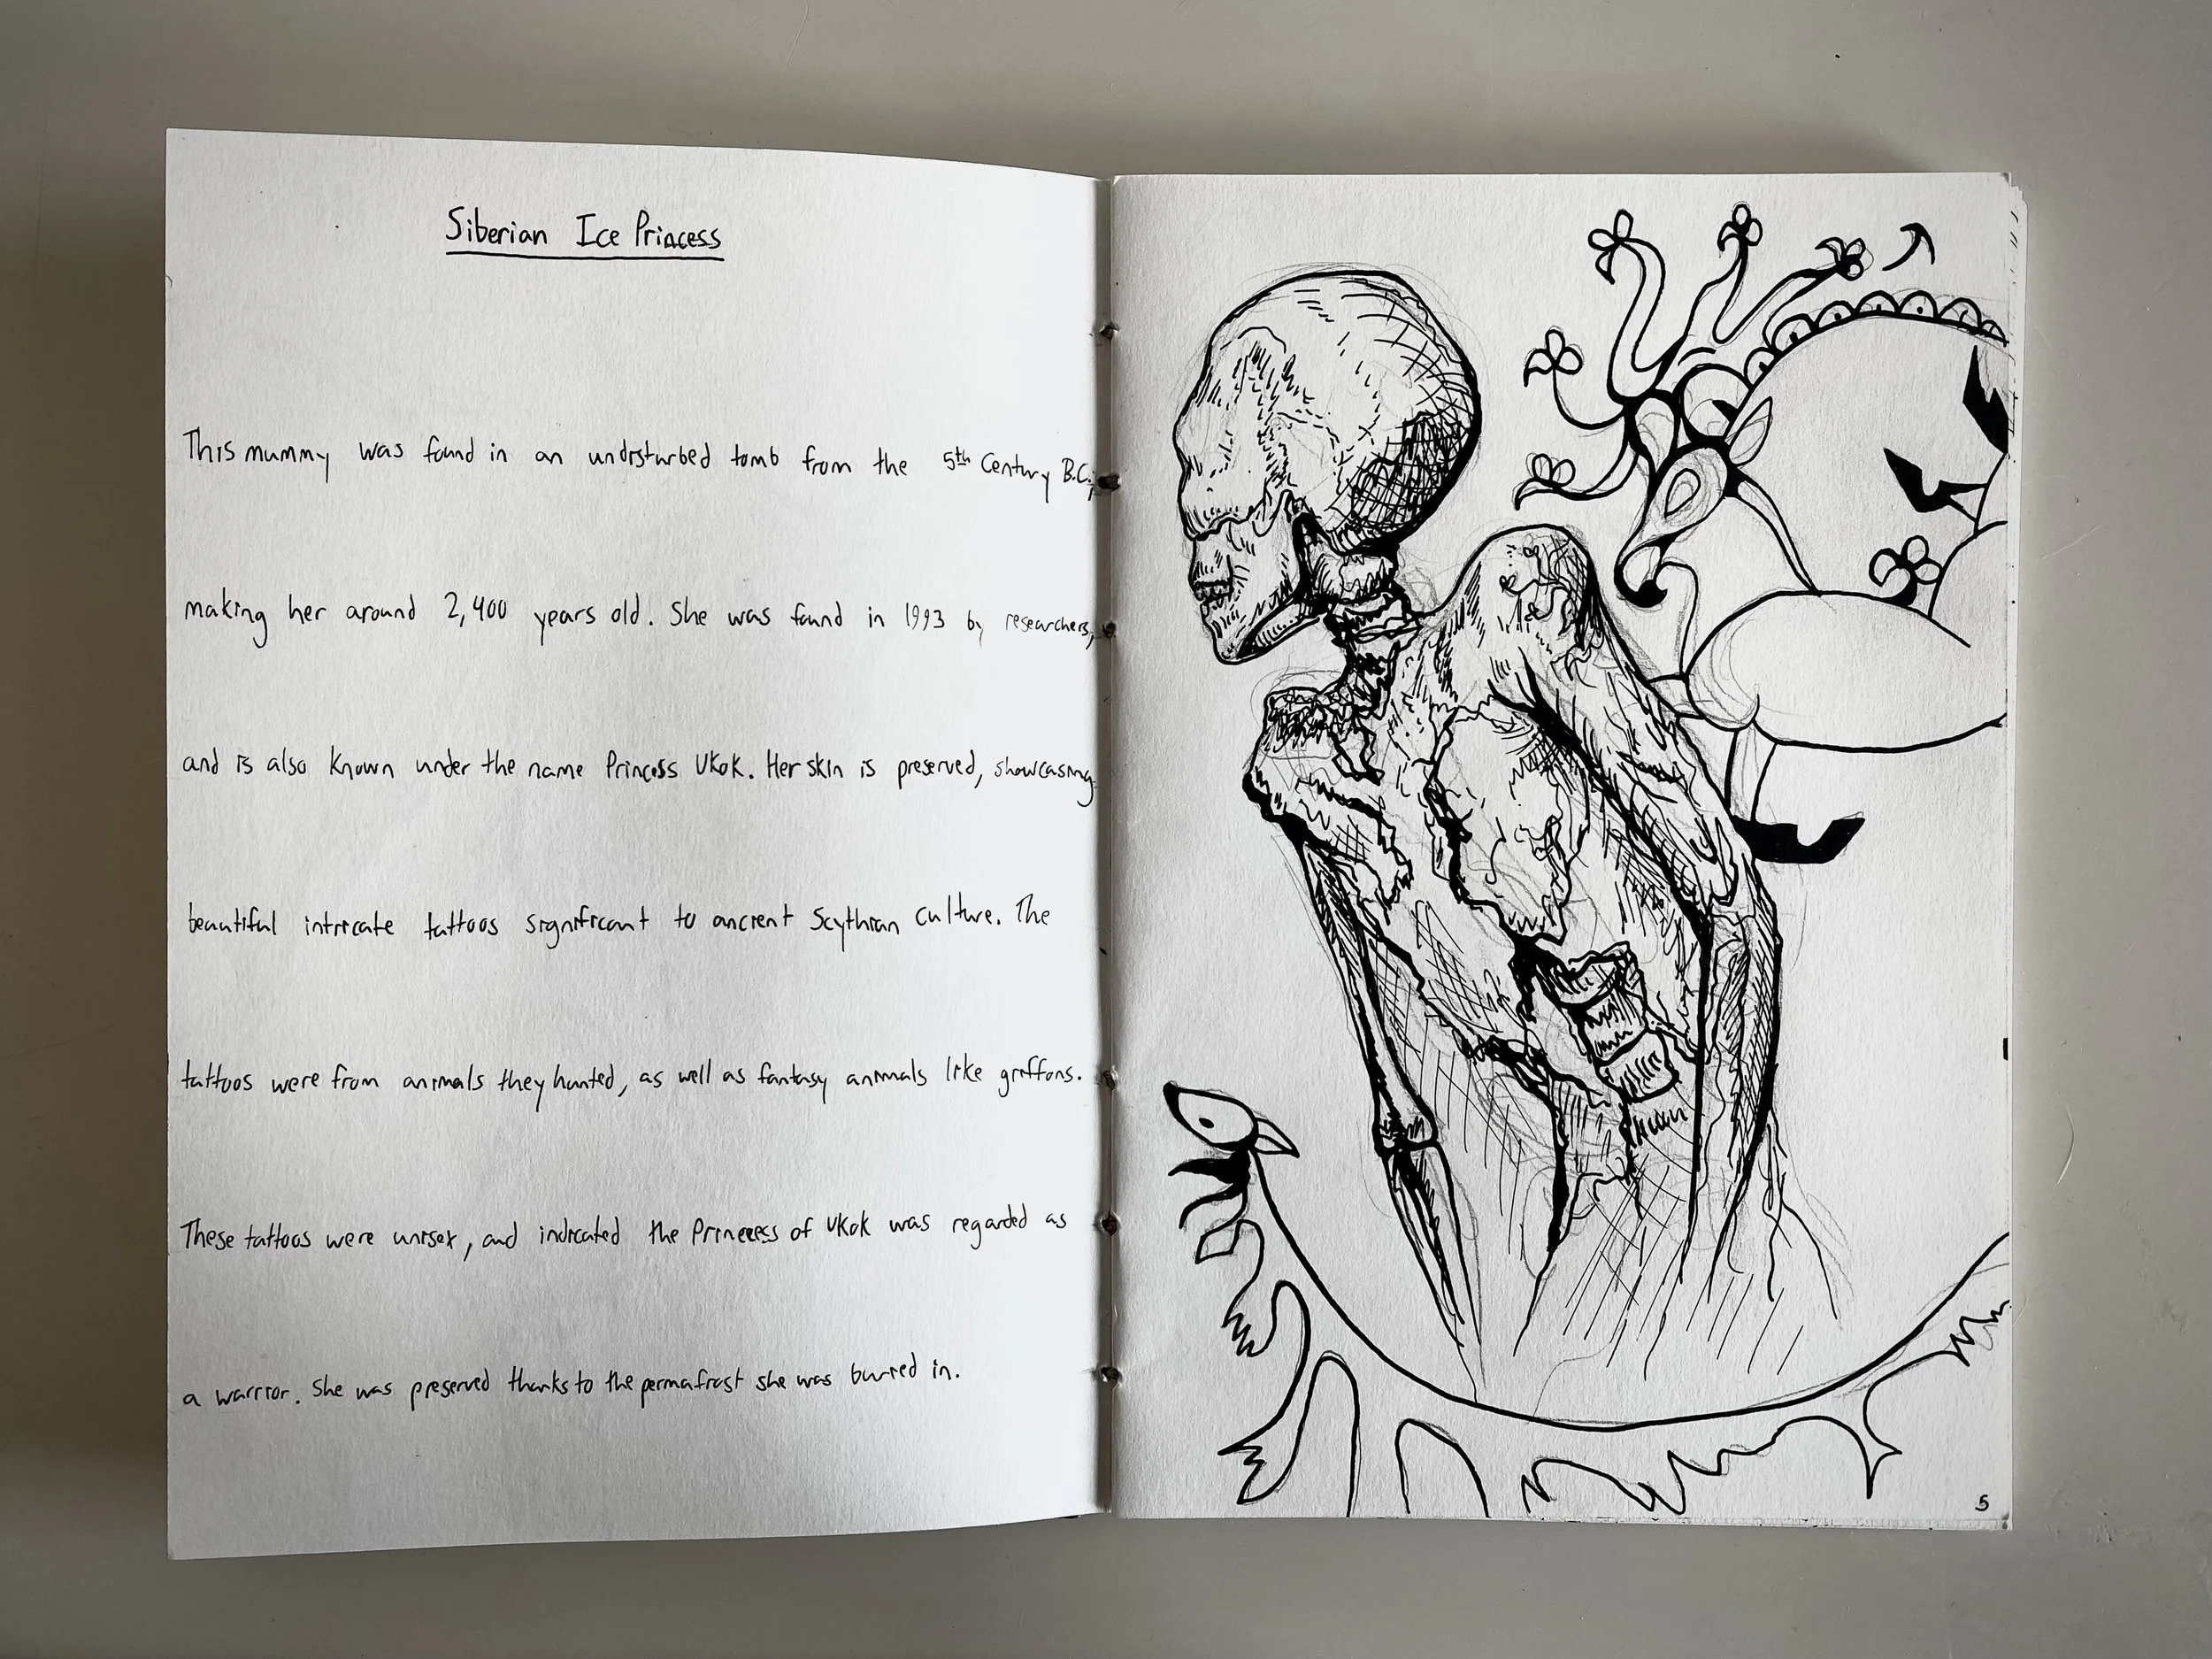 Siberian Ice Princess
This mummy was found in an undisturbed tomb from the 5th Century B.C.,
making her around 2,400 years old. She was found in 1993 by researchers,
and is also known under the name Princess Ukok. Her skin is preserved, showcasing
beautiful intricate tattoos significant to ancient Scythian culture. The
tattoos were from animals they hunted, as well as fantasy animals like griffons.
These tattoos were unisex, and indicated the Princess of Ukok was regarded as
a warrior. She was preserved thanks to the permafrost she was burried in.
5